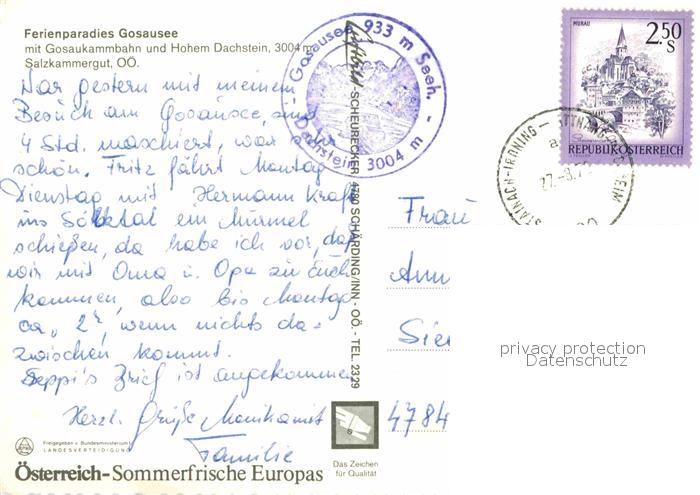 Ferienparadies Gosausee
mit Gosaukammbahn und Hohem Dachstein, 3004 m
Salzkammergut, OÖ.
War gestern mit meinem
Besuch am Gosausee, sind
4 Std. maschiert, war
schön. Fritz fährt Montag
Dienstag mit Hermann Kraft
ins ein Murmel
schießen, da habe ich vor, daß
wir mit Oma u. Opa zu Euch
kommen, also bis Montag
ca. 2h, wenn nichts da-
zwischen kommt.
Seppi's Brief ist angekommen
Herzl. Grüße
Familie
Freigegeben v. Bundesministerium f.
LANDESVERTEIDIGUNG
Österreich-Sommerfrische Europas
Das Zeichen
für Qualität
SCHEURECKER 4780 SCHÄRDING/INN - OÖ. - TEL. 2329
Gosausee 933 m Seeh.
Dachstein 3004 m
MURAU
2.50
S
REPUBLIK ÖSTERREICH
STAINACH-IRDNING
Frau
Ann
Sier
4784
privacy protection
Datenschutz